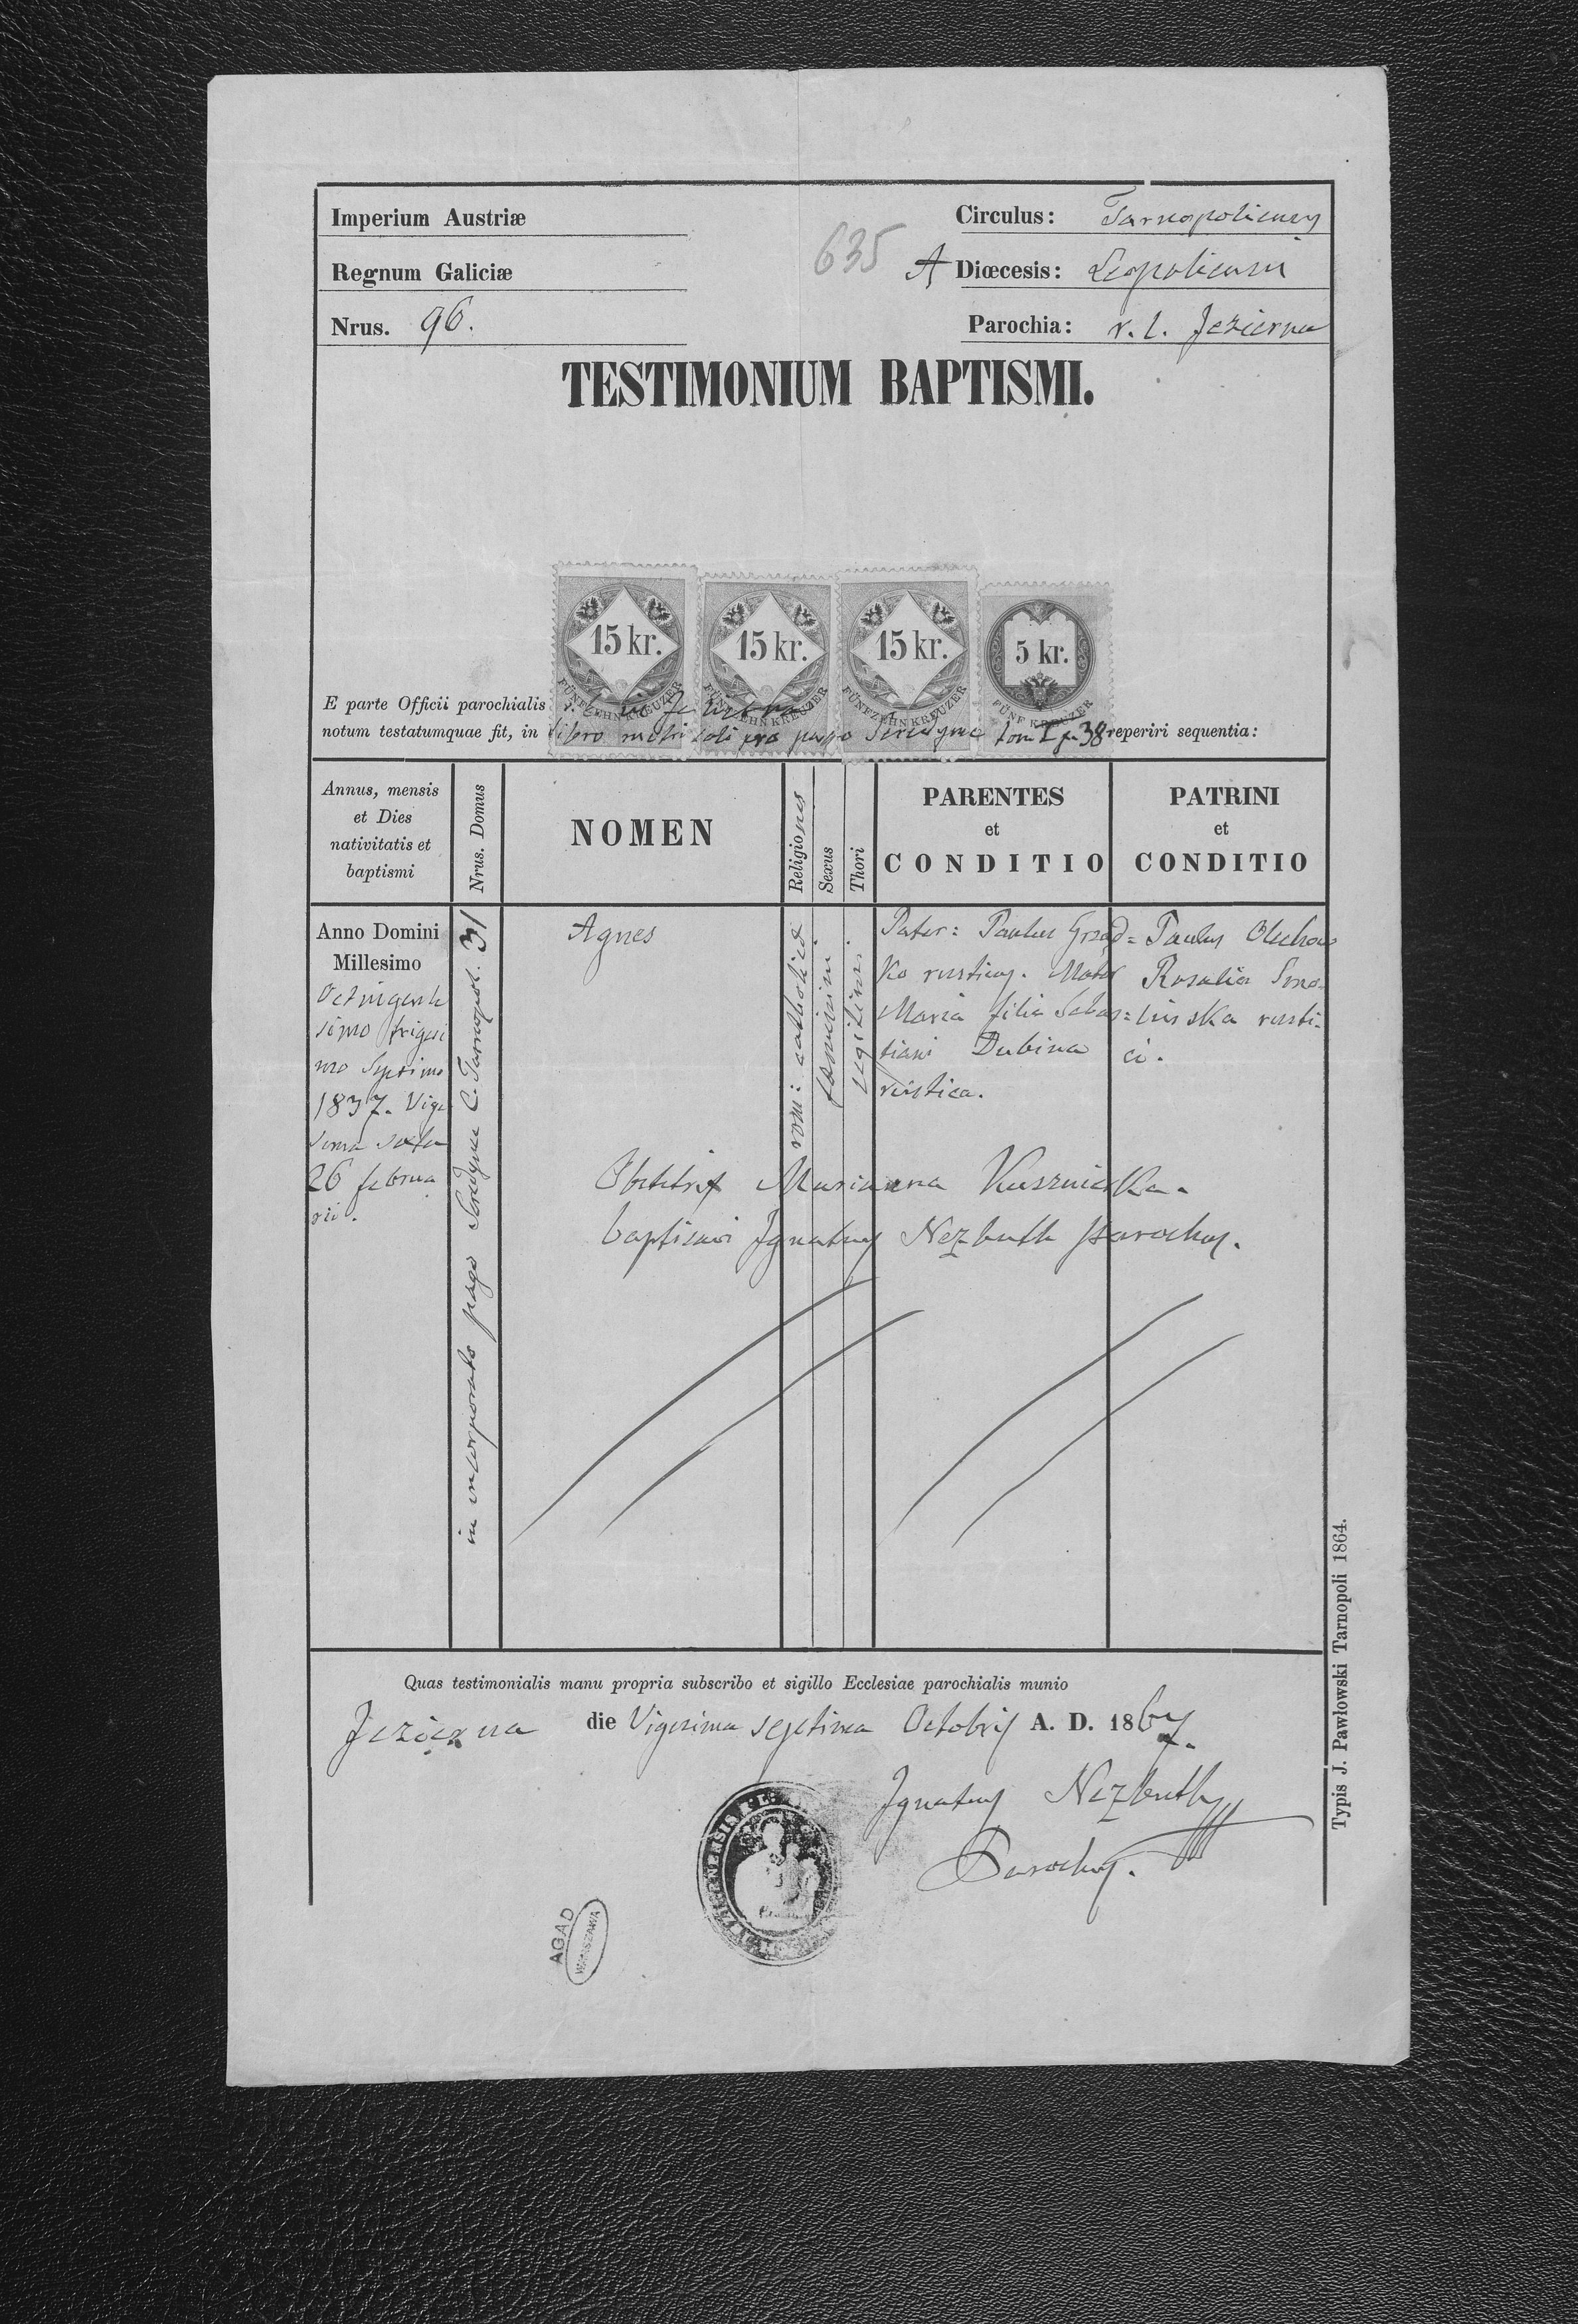 Imperium Austriæ
Circulus: Tarnopoliensis
Regnum Galiciæ
635
A Diœcesis: Leopoliensis
Nrus. 96.
Parochia: r. l. Jezierna
TESTIMONIUM BAPTISMI.
15 kr. 15 kr. 15 kr. 5 kr.
FÜNFZEHN KREUZER FÜNFZEHN KREUZER FÜNFZEHN KREUZER FÜNF KREUZER
E parte Officii parochialis r. l. in Jezierna
notum testatumquae fit, in libro pro pago Seredynce tom I p. 38 reperiri sequentia:
Annus, mensis
et Dies
nativitatis et
baptismi
Nrus. Domus
NOMEN
Religiones
Sexus
Thori
PARENTES
et
CONDITIO
PATRINI
et
CONDITIO
Anno Domini
Millesimo
Octingente
simo trigesi
mo Septimo
1837. Vige
sima sexta
26 februa
rii.
in incorporato pago Seredynce C. Tarnopol. 31
Agnes
rom: catholica
feminini
legitimi.
Pater: Paulus Grzad=
ko rusticus. Mater
Maria filia Sebas=
tiani Dubina
rustica.
Paulus Olechow
Rosalia Smo-
linska rusti-
ci.
Obstetrix Marianna Kuszniarka.
baptisavi Ignatius Nezbuth parochus.
Quas testimonialis manu propria subscribo et sigillo Ecclesiae parochialis munio
Jezierna die Vigesima septima Octobris A. D. 1867.
Ignatius Nezbuth
Parochus.
AGAD
WARSZAWA
Typis J. Pawłowski Tarnopoli 1864.